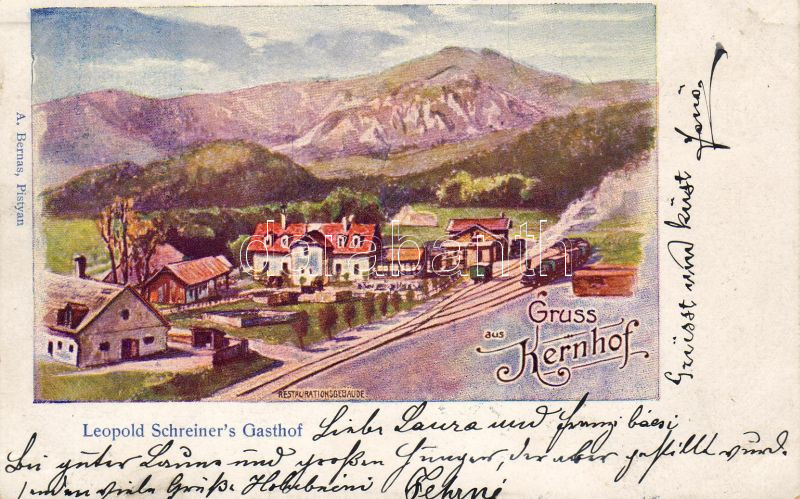 A. Bernas, Pistyan
Gruss
aus
Kernhof
RESTAURATIONSGEBÄUDE
darabanth
Leopold Schreiner's Gasthof
Liebe Laura und
Bei guter Laune und großen Hunger, der aber gestillt wurde
viele Grüße
Grüsst und küsst Jenő